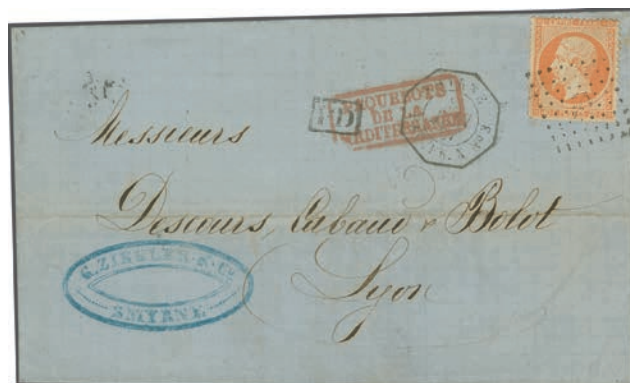 P.D.
PAQUEBOTS
DE LA
MÉDITERRANÉE
Messieurs
Descours, Cabaud & Bolot
Lyon
G. ZIEGLER & Cie
SMYRNE